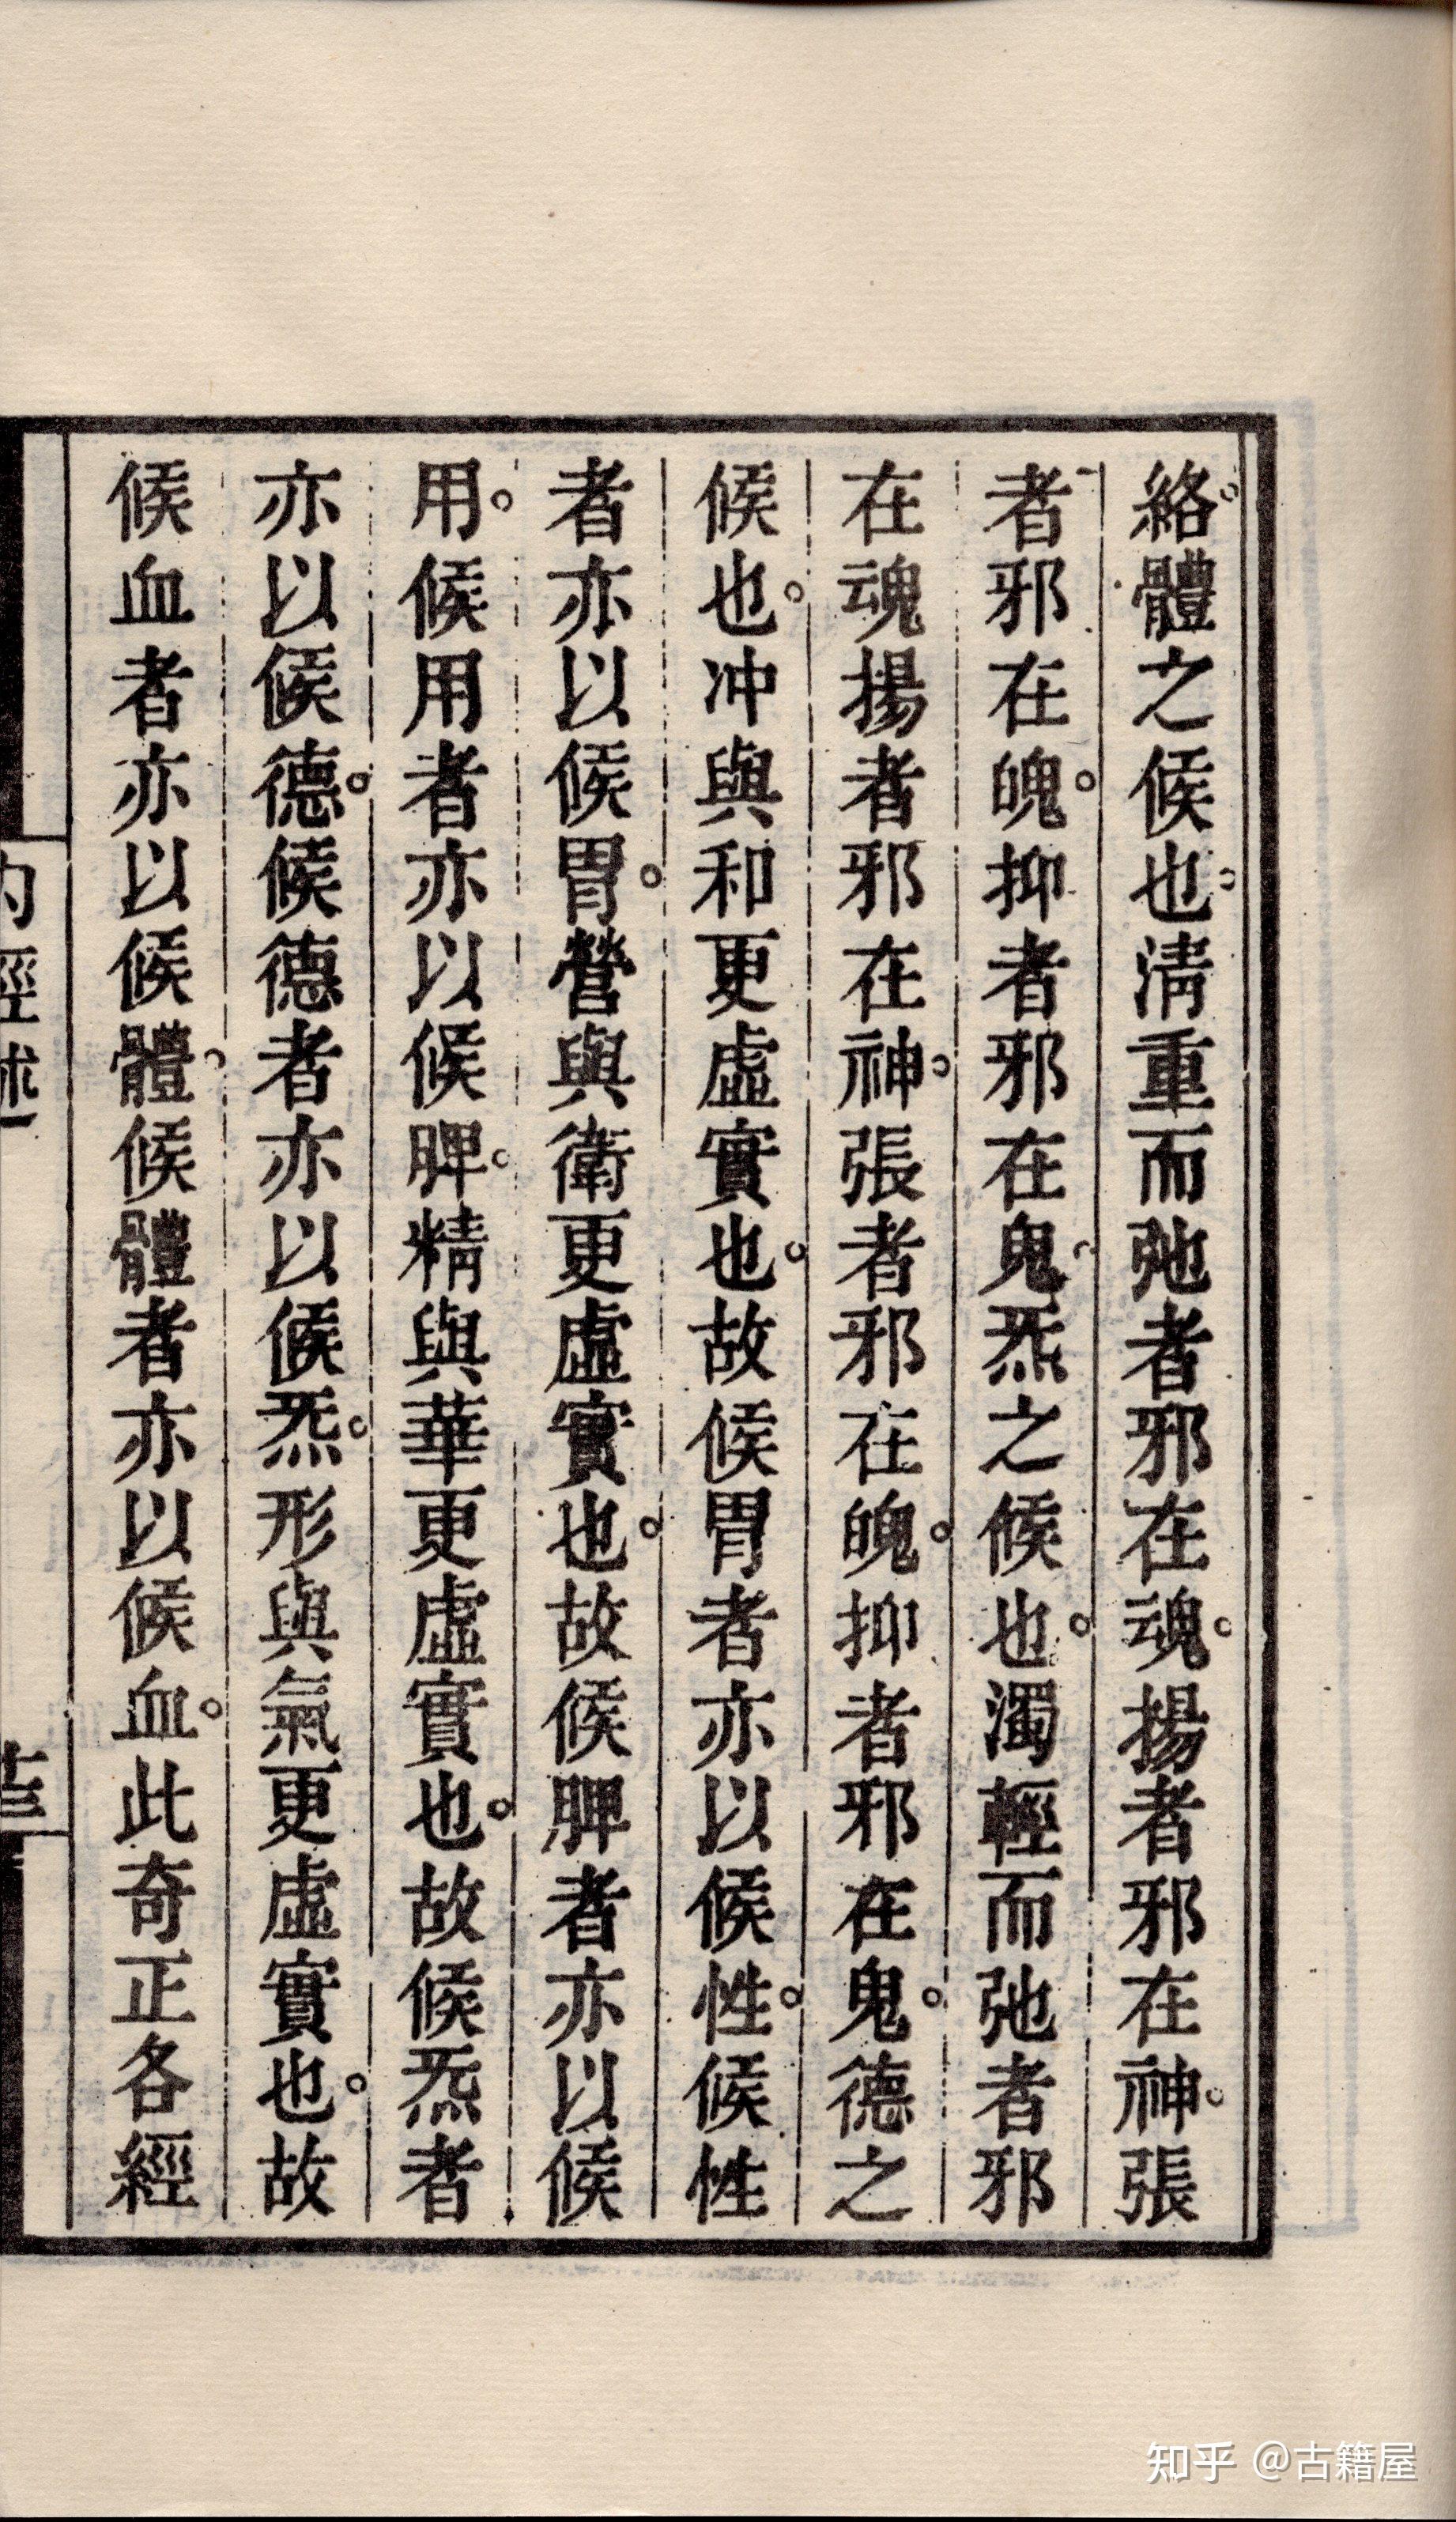 絡。體之候也。淸重而弛者邪在魂。揚者邪在神。張
者邪在魄。抑者邪在鬼。炁之候也。濁輕而弛者邪
在魂揚者邪在神。張者邪在魄。抑者邪在鬼。德之
候也。冲與和更虛實也。故候胃者亦以候性。候性
者亦以候胃。營與衛更虛實也。故候脾者亦以候
用。候用者亦以候脾。精與華更虛實也。故候炁者
亦以候德。候德者亦以候炁。形與氣更虛實也。故
候血者亦以候體。候體者亦以候血。此奇正各經
內經述
十三
知乎 @古籍屋